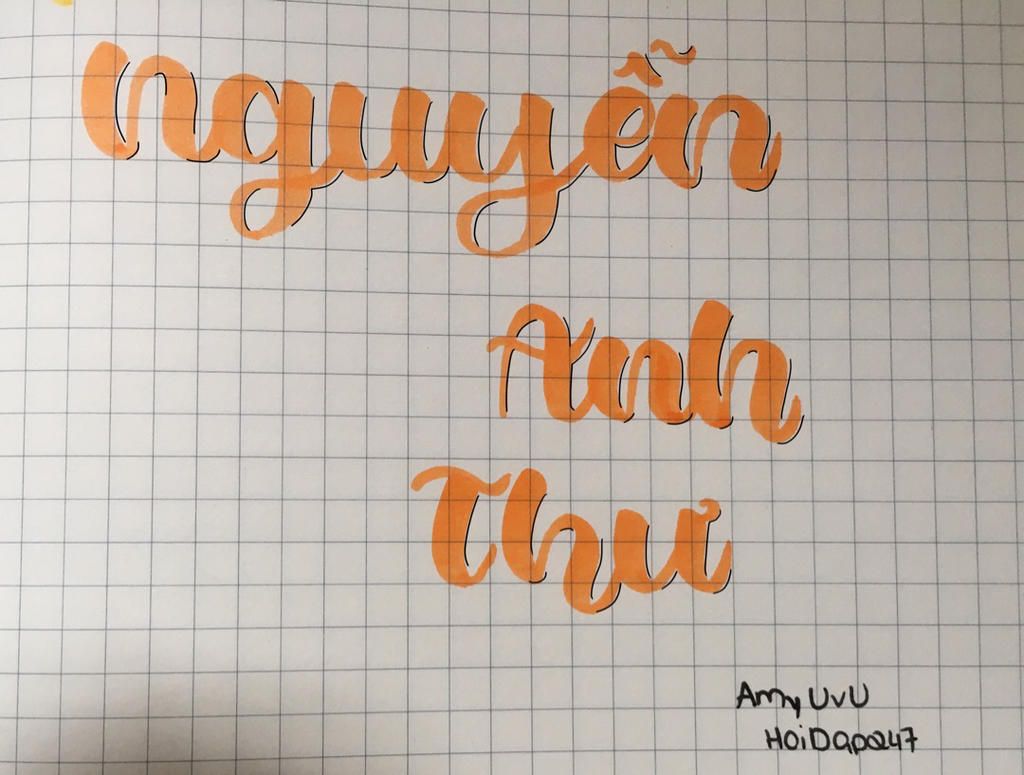 nguyễn
Anh
Thư
Amy UvU
HoiDap247